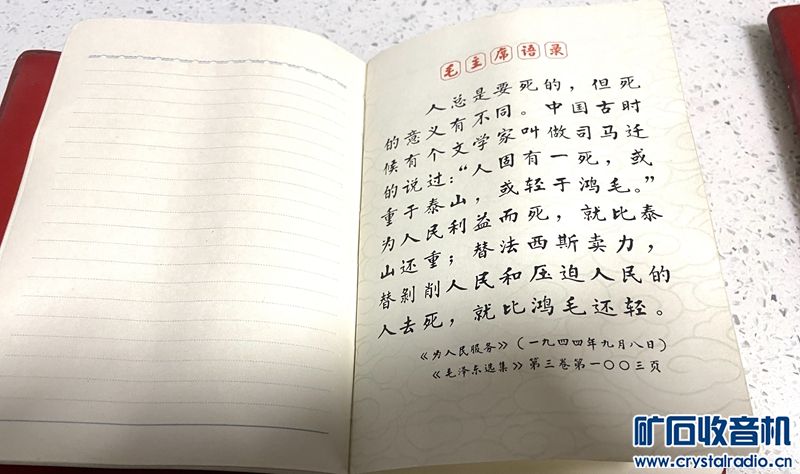 毛主席语录
人总是要死的，但死
的意义有不同。中国古时
候有个文学家叫做司马迁
的说过：“人固有一死，或
重于泰山，或轻于鸿毛。”
为人民利益而死，就比泰
山还重；替法西斯卖力，
替剥削人民和压迫人民的
人去死，就比鸿毛还轻。
《为人民服务》（一九四四年九月八日）
《毛泽东选集》第三卷第一〇〇三页
矿石收音机
www.crystalradio.cn